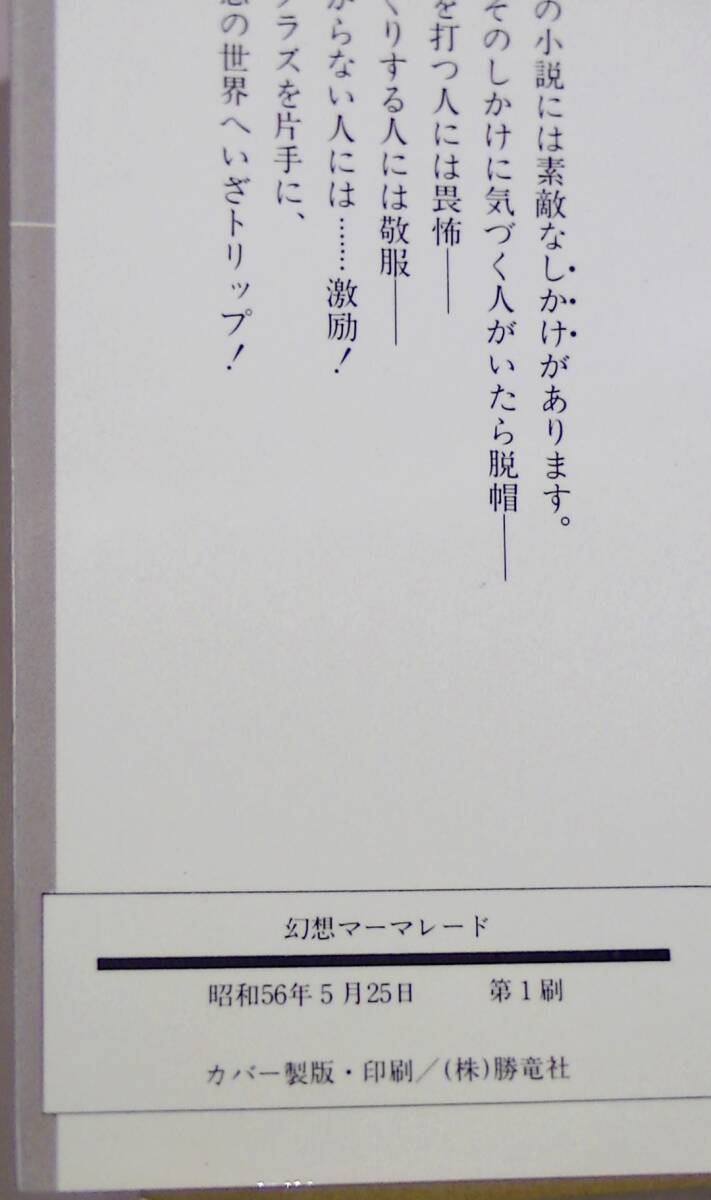 の小説には素敵なしかけがあります。
そのしかけに気づく人がいたら脱帽——
を打つ人には畏怖——
くりする人には敬服——
からない人には……激励！
グラスを片手に、
の世界へいざトリップ！
幻想マーマレード
昭和56年5月25日　第1刷
カバー製版・印刷／(株)勝竜社